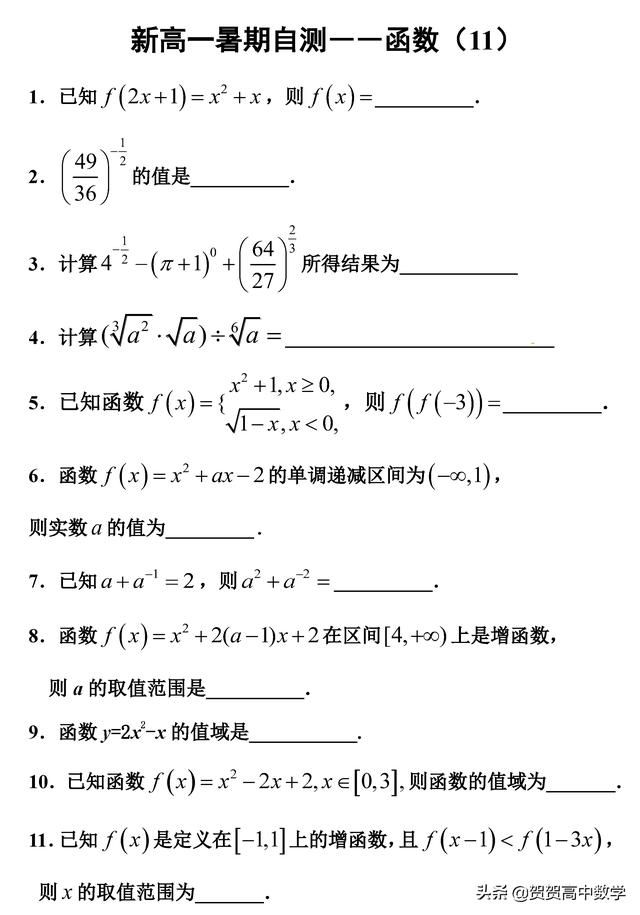 新高一暑期自测——函数（11）
1．已知 f(2x+1)=x²+x，则 f(x)=__________．
2．(49/36)^(-1/2) 的值是__________．
3．计算 4^(-1/2)-(π+1)^0+(64/27)^(2/3) 所得结果为____________
4．计算(∛a²·√a)÷⁶√a=___________________________
5．已知函数 f(x)={x²+1,x≥0, √(1-x),x<0,，则 f(f(-3))=__________．
6．函数 f(x)=x²+ax-2 的单调递减区间为(-∞,1)，
则实数 a 的值为_________．
7．已知 a+a⁻¹=2，则 a²+a⁻²=__________．
8．函数 f(x)=x²+2(a-1)x+2 在区间[4,+∞) 上是增函数，
则 a 的取值范围是__________．
9．函数 y=2x²-x 的值域是___________.
10．已知函数 f(x)=x²-2x+2,x∈[0,3],则函数的值域为_______．
11．已知 f(x)是定义在[-1,1]上的增函数,且 f(x-1)<f(1-3x)，
则 x 的取值范围为_______．
头条 @贺贺高中数学